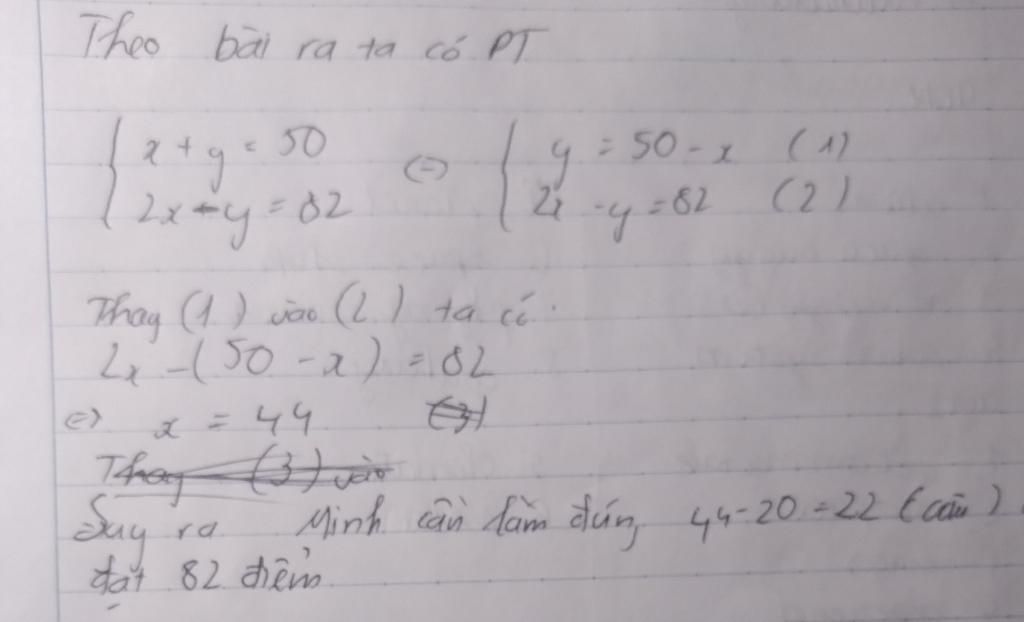 Theo bài ra ta có PT
{ x + y = 50 (=) { y = 50 - x (1)
{ 2x - y = 82 { 2x - y = 82 (2)
Thay (1) vào (2) ta có
2x - (50 - x) = 82
(=) x = 44 (3)
Thay (3) vào
Suy ra Minh cần làm đúng 44-20=22 (câu)
đạt 82 điểm